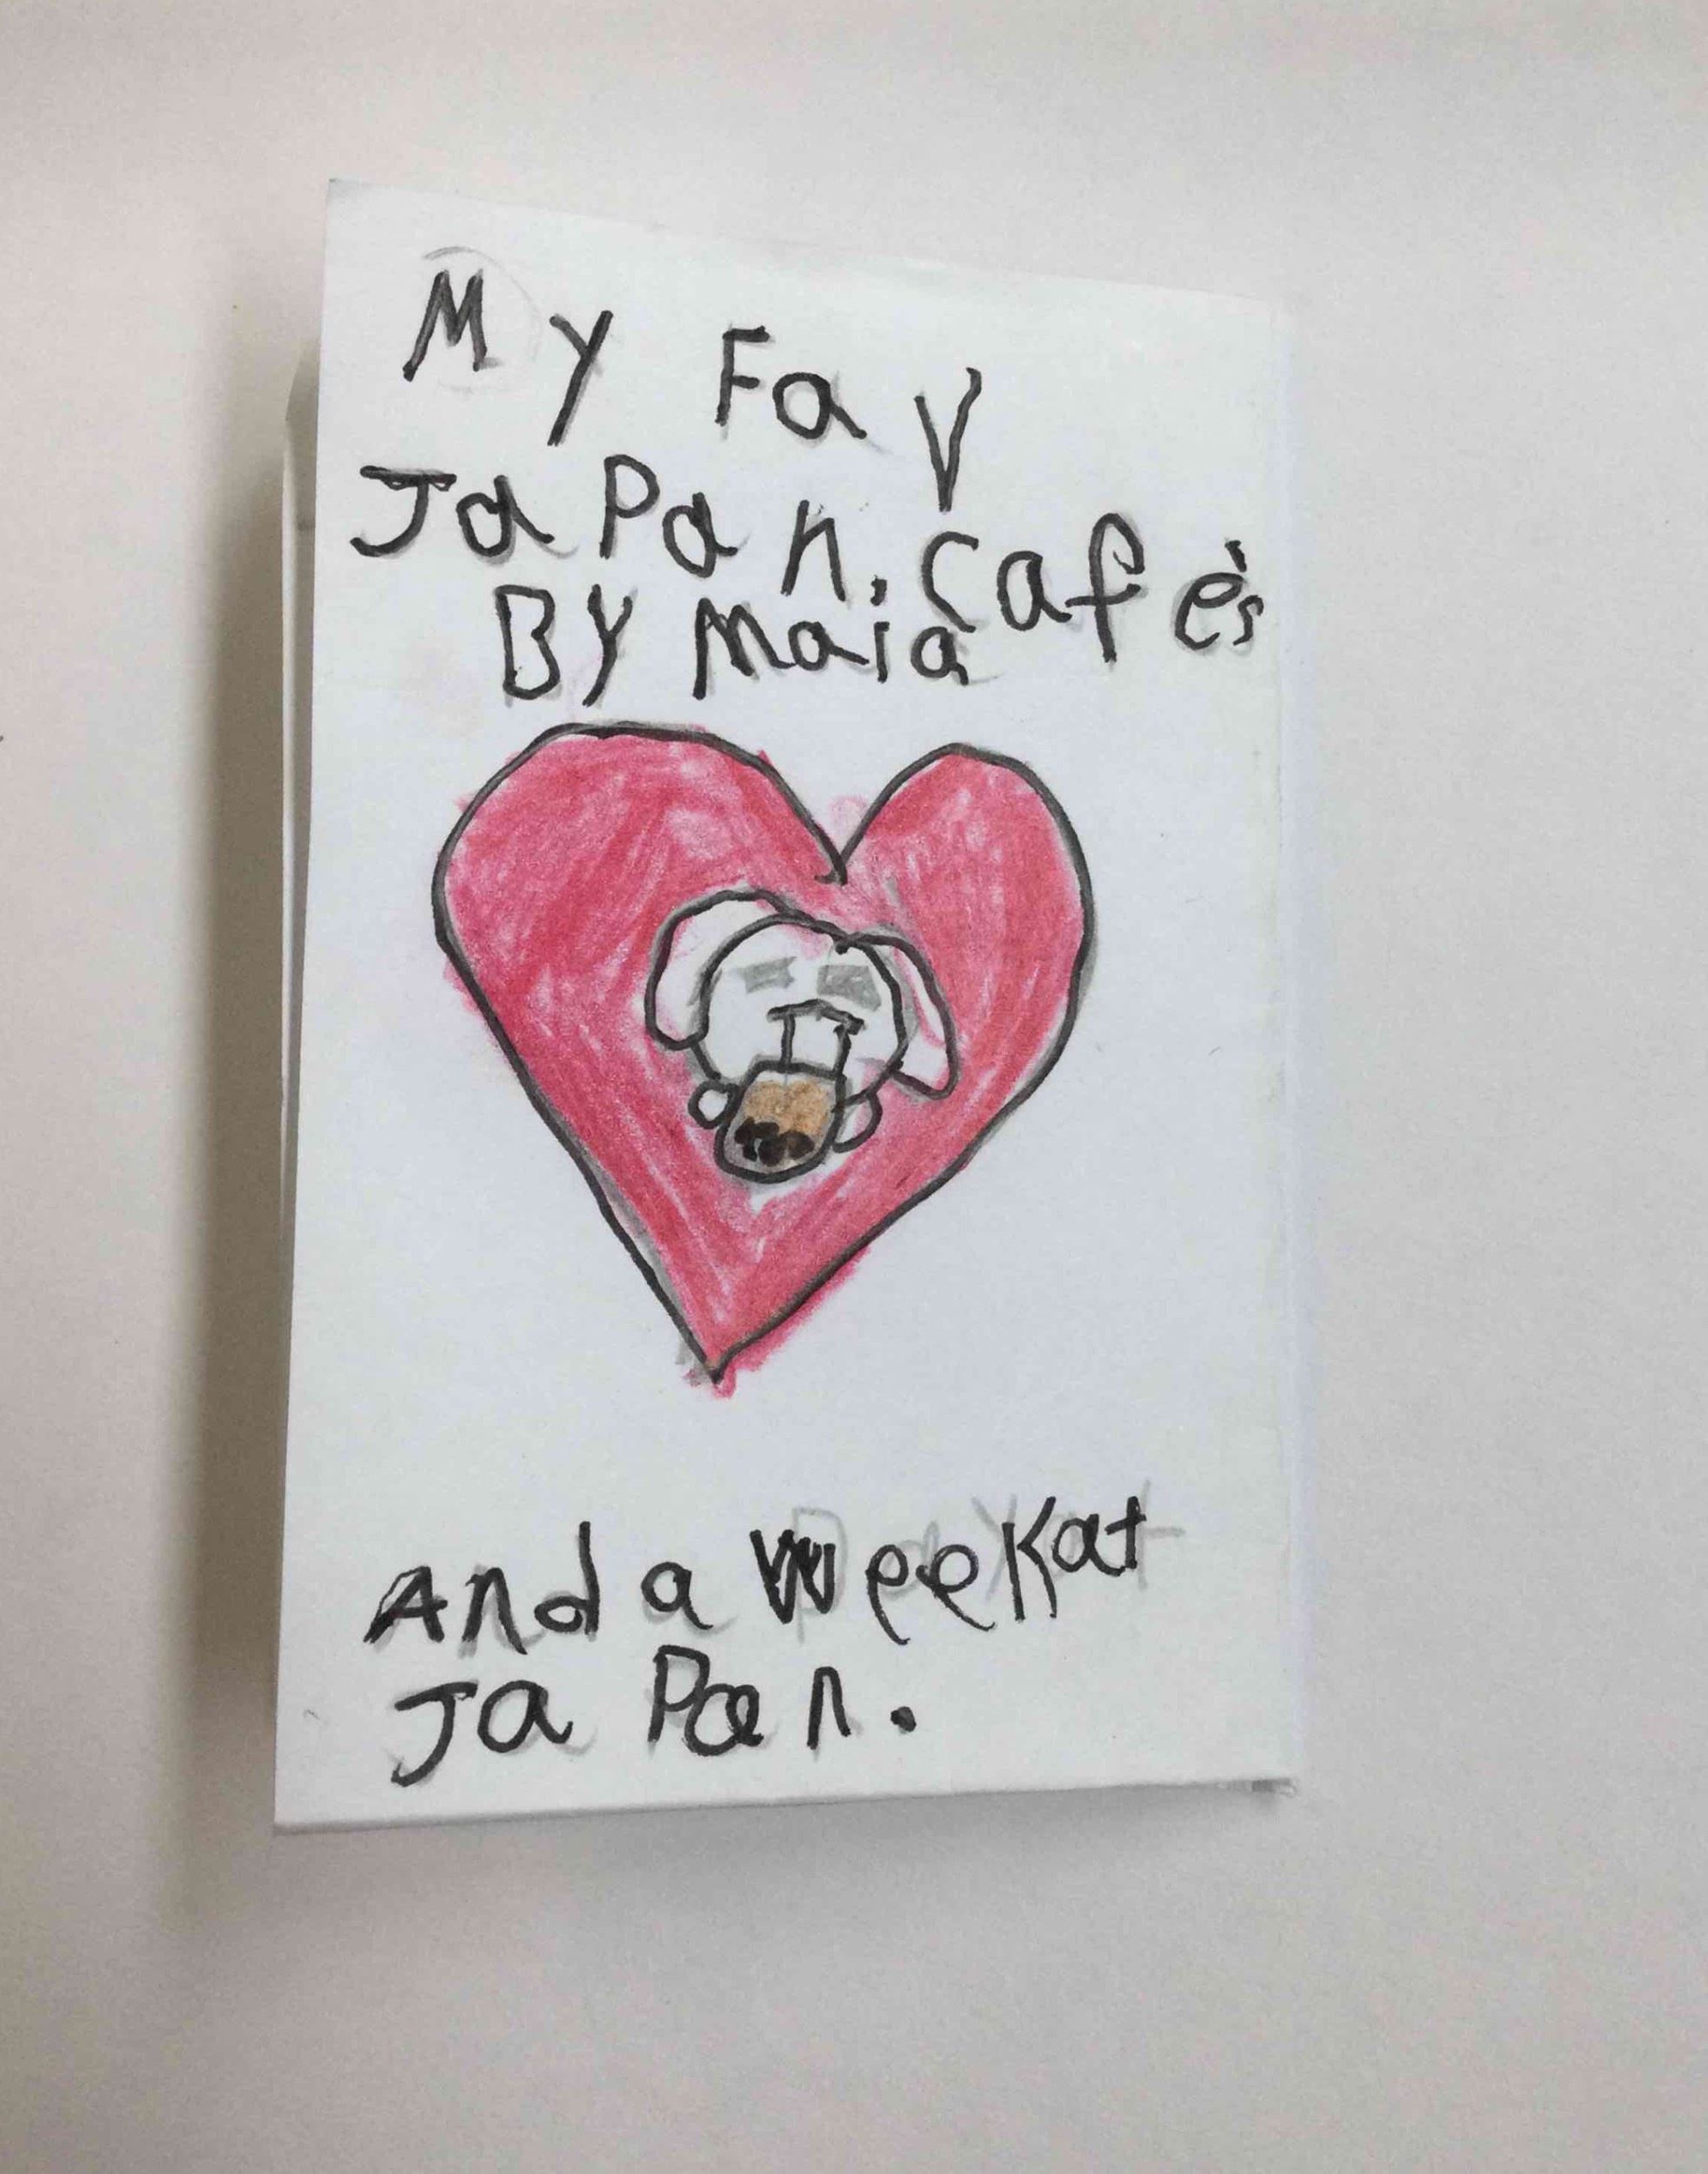 My Fav
Japan. cafés
By Maia
And a week at
Japan.